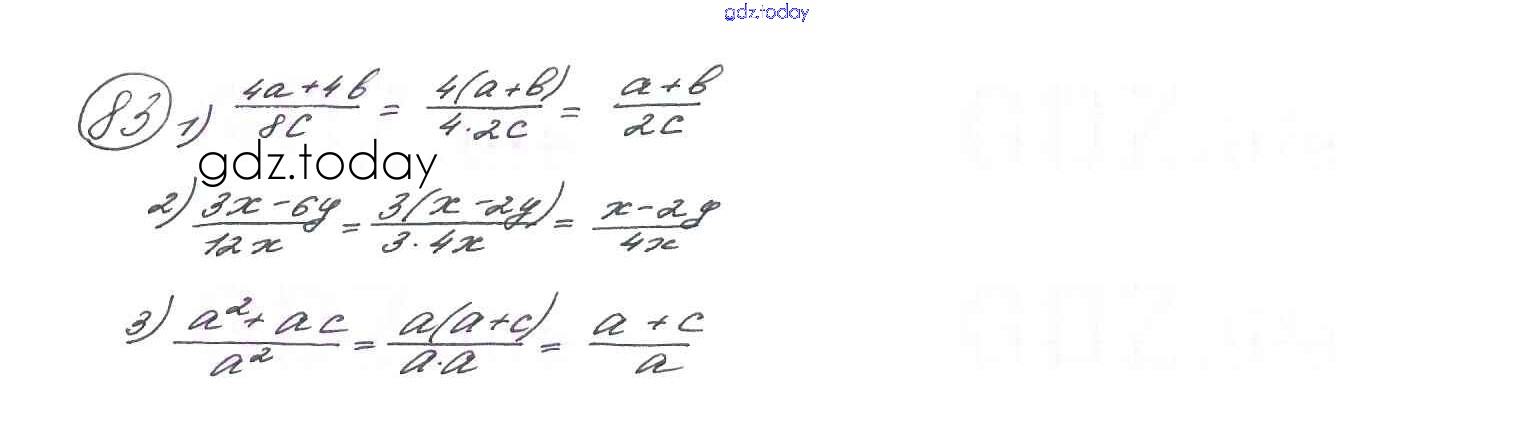 gdz.today
83 1) (4a+4b)/(8c) = (4(a+b))/(4·2c) = (a+b)/(2c)
gdz.today
2) (3x-6y)/(12x) = (3(x-2y))/(3·4x) = (x-2y)/(4x)
3) (a²+ac)/(a²) = (a(a+c))/(a·a) = (a+c)/(a)